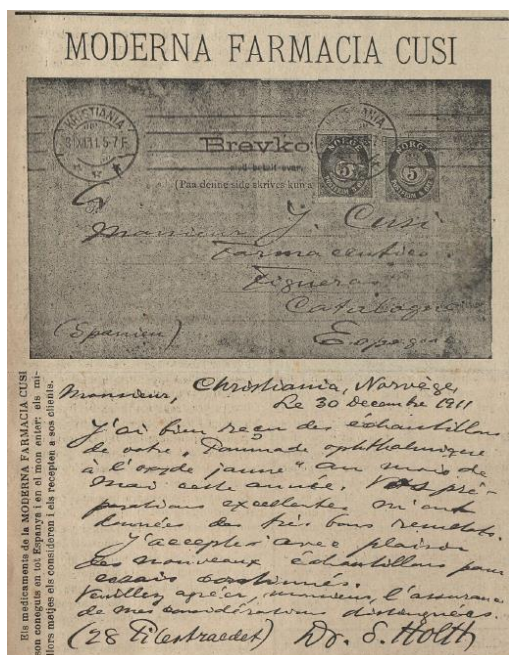 MODERNA FARMACIA CUSI
KRISTIANIA
Brevko
(Paa denne side skrives kun a
NORGE
5
NORGE
5
Monsieur J. Cusí
Farmaceutico.
Figueras
Catalogne
(Spanien)
Espagne
Els medicaments de la MODERNA FARMACIA CUSI
son coneguts en tot Espanya i en el mon enter; els mi-
llors metjes els consideren i els recepten a sos clients.
Monsieur,
Christiania, Norvège,
Le 30 Decembre 1911
J'ai bien reçu des échantillons
de votre „Pommade ophthalmique
à l'oxyde jaune" au mois de
mai cette année. Vos pré-
parations excellentes m'ont
données des très bons resultats.
J'accepte avec plaisir
des nouveaux échantillons pour
essais continués.
Veuillez agréer, monsieur, l'assurance
de mes considérations distinguées.
(28 Pilestraedet) Dr. S. Holth